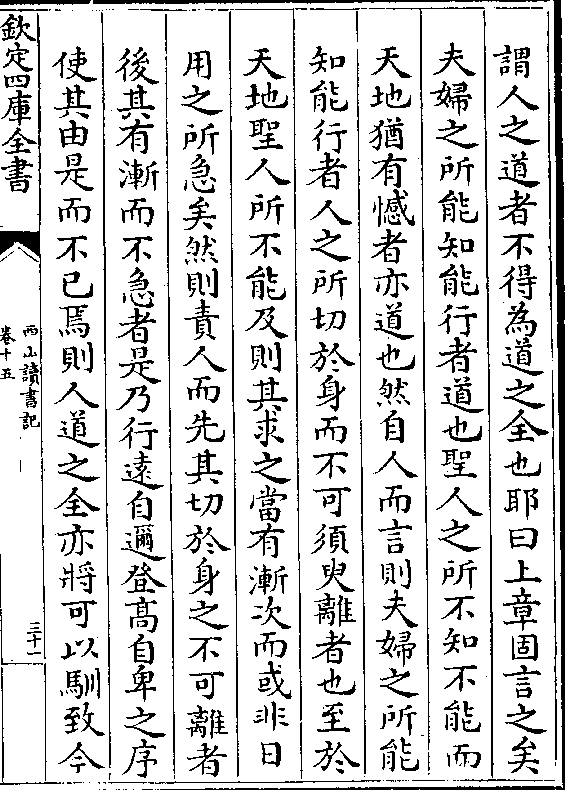 謂人之道者不得為道之全也耶曰上章固言之矣
夫婦之所能知能行者道也聖人之所不知不能而
天地猶有憾者亦道也然自人而言則夫婦之所能
知能行者人之所切於身而不可須臾離者也至於
天地聖人所不能及則其求之當有漸次而或非日
用之所急矣然則責人而先其切於身之不可離者
後其有漸而不急者是乃行遠自邇登高自卑之序
使其由是而不已焉則人道之全亦將可以馴致今
欽定四庫全書
西山讀書記
卷十五
三十一